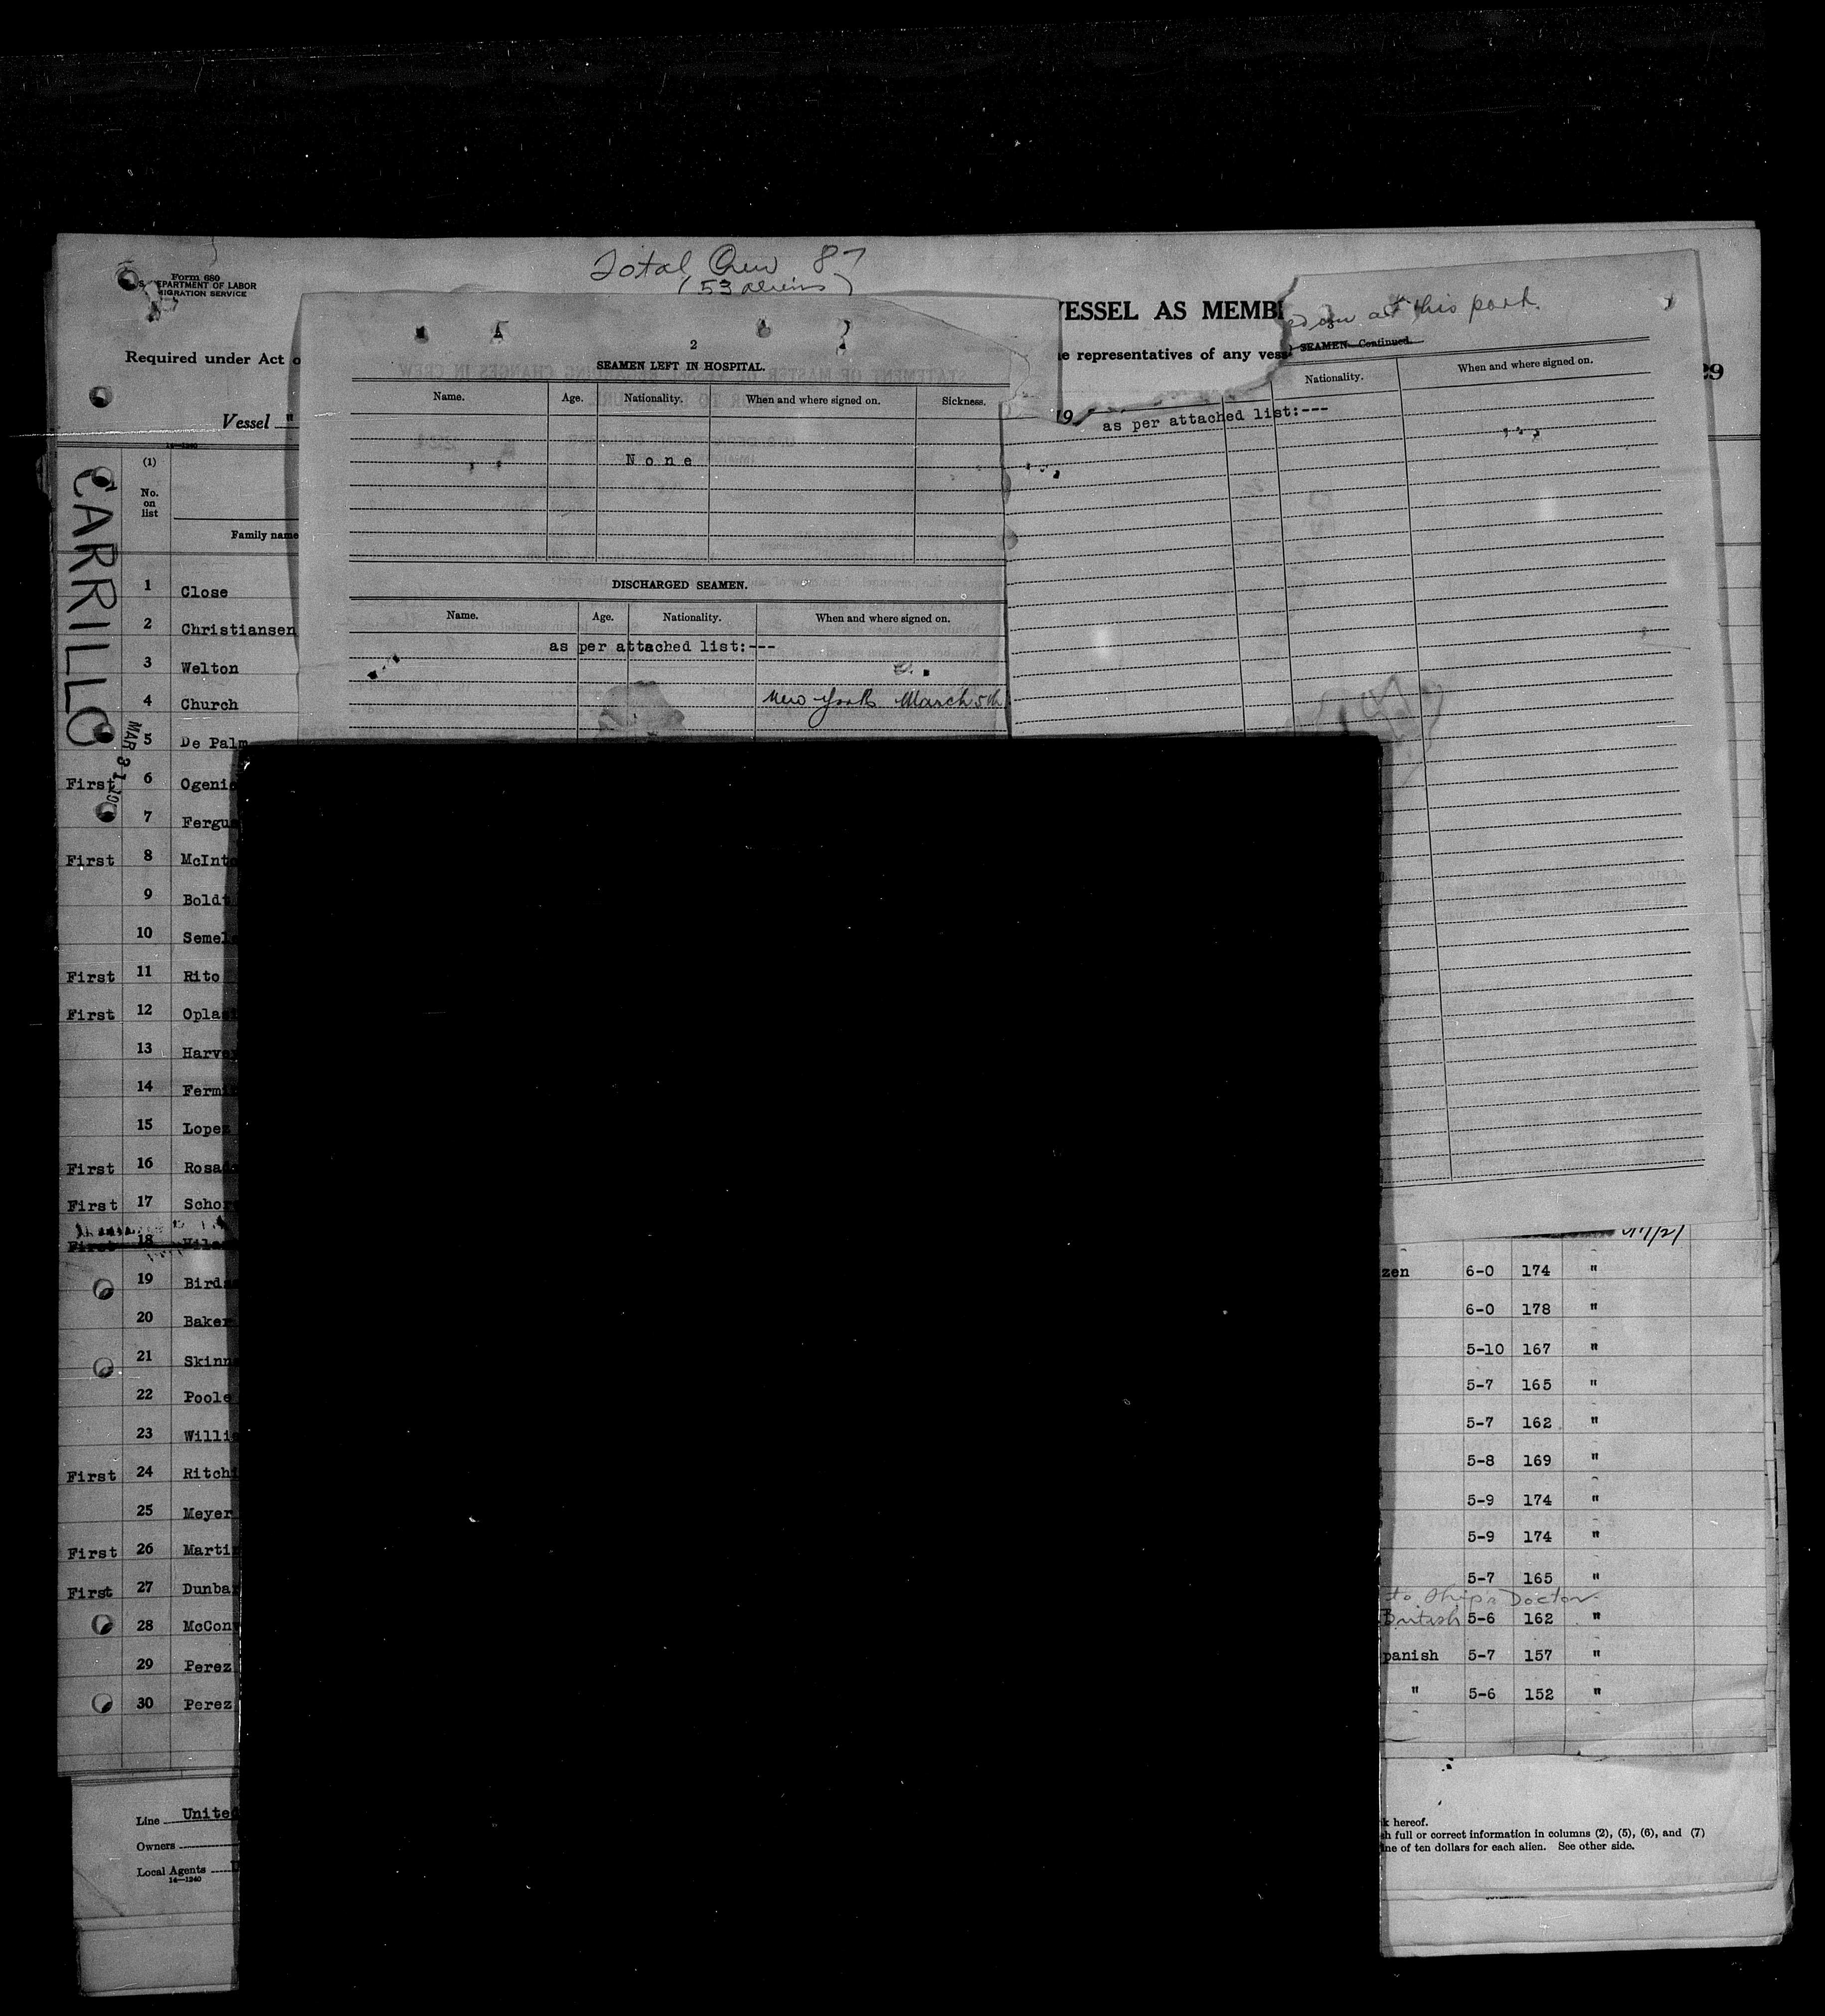 Total Crew 87
(53 aliens)
Form 680
DEPARTMENT OF LABOR
MIGRATION SERVICE
VESSEL AS MEMB
at this port.
Required under Act o
e representatives of any vess
SEAMEN Continued.
29
Vessel "
19
14—1240
Nationality.
When and where signed on.
as per attached list:---
2
SEAMEN LEFT IN HOSPITAL.
Name. Age. Nationality. When and where signed on. Sickness.
None
DISCHARGED SEAMEN.
Name. Age. Nationality. When and where signed on.
as per attached list:---
New York March 5th
CARRILLO
MAR 31
(1)
No. on list
Family name
1 Close
2 Christiansen
3 Welton
4 Church
5 De Palm
First 6 Ogeni
7 Fergu
First 8 McInt
9 Boldt
10 Semel
First 11 Rito
First 12 Opla
13 Harve
14 Fermi
15 Lopez
First 16 Rosad
First 17 Schor
First 18 Hila
19 Birds
zen 6-0 174 "
20 Baker
6-0 178 "
21 Skinn
5-10 167 "
22 Poole
5-7 165 "
23 Willi
5-7 162 "
First 24 Ritchi
5-8 169 "
25 Meyer
5-9 174 "
First 26 Marti
5-9 174 "
First 27 Dunbar
5-7 165 "
to Ship's Doctor
28 McCon
British 5-6 162 "
29 Perez
panish 5-7 157 "
30 Perez
" 5-6 152 "
Line United
Owners
Local Agents
14—1240
k hereof.
h full or correct information in columns (2), (5), (6), and (7)
ine of ten dollars for each alien. See other side.